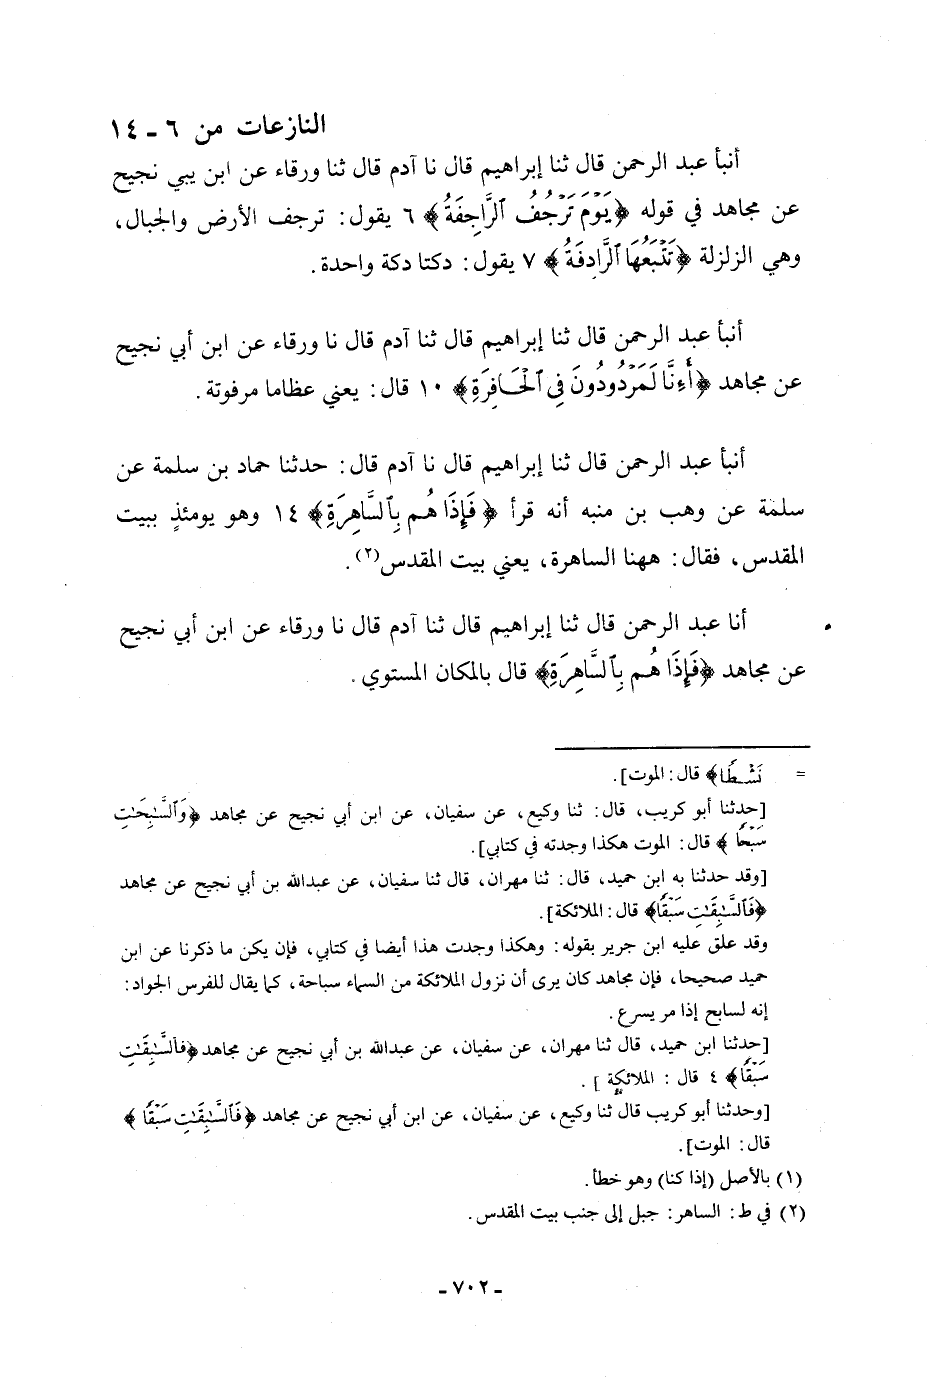 النازعات من ٦ ـ ١٤
أنبأ عبد الرحمن قال ثنا إبراهيم قال نا آدم قال ثنا ورقاء عن ابن يبي نجيح
عن مجاهد في قوله ﴿يَوْمَ تَرْجُفُ ٱلرَّاجِفَةُ﴾ ٦ يقول: ترجف الأرض والجبال،
وهي الزلزلة ﴿تَتْبَعُهَا ٱلرَّادِفَةُ﴾ ٧ يقول: دكتا دكة واحدة.
أنبأ عبد الرحمن قال ثنا إبراهيم قال ثنا آدم قال نا ورقاء عن ابن أبي نجيح
عن مجاهد ﴿أَءِنَّا لَمَرْدُودُونَ فِى ٱلْحَافِرَةِ﴾ ١٠ قال: يعني عظاما مرفوتة.
أنبأ عبد الرحمن قال ثنا إبراهيم قال نا آدم قال: حدثنا حماد بن سلمة عن
سلمة عن وهب بن منبه أنه قرأ ﴿فَإِذَا هُم بِٱلسَّاهِرَةِ﴾ ١٤ وهو يومئذٍ ببيت
المقدس، فقال: ههنا الساهرة، يعني بيت المقدس(٢).
أنا عبد الرحمن قال ثنا إبراهيم قال ثنا آدم قال نا ورقاء عن ابن أبي نجيح
عن مجاهد ﴿فَإِذَا هُم بِٱلسَّاهِرَةِ﴾ قال بالمكان المستوي.
= نَشْطًا﴾ قال: الموت].
[حدثنا أبو كريب، قال: ثنا وكيع، عن سفيان، عن ابن أبي نجيح عن مجاهد ﴿وَٱلسَّٰبِحَٰتِ
سَبْحًا﴾ قال: الموت هكذا وجدته في كتابي].
[وقد حدثنا به ابن حميد، قال: ثنا مهران، قال ثنا سفيان، عن عبدالله بن أبي نجيح عن مجاهد
﴿فَٱلسَّٰبِقَٰتِ سَبْقًا﴾ قال: الملائكة].
وقد علق عليه ابن جرير بقوله: وهكذا وجدت هذا أيضا في كتابي، فإن يكن ما ذكرنا عن ابن
حميد صحيحا، فإن مجاهد كان يرى أن نزول الملائكة من السماء سباحة، كما يقال للفرس الجواد:
إنه لسابح إذا مر يسرع.
[حدثنا ابن حميد، قال ثنا مهران، عن سفيان، عن عبدالله بن أبي نجيح عن مجاهد ﴿فَٱلسَّٰبِقَٰتِ
سَبْقًا﴾ ٤ قال : الملائكة ].
[وحدثنا أبو كريب قال ثنا وكيع، عن سفيان، عن ابن أبي نجيح عن مجاهد ﴿فَٱلسَّٰبِقَٰتِ سَبْقًا﴾
قال: الموت].
(١) بالأصل (إذا كنا) وهو خطأ.
(٢) في ط: الساهر: جبل إلى جنب بيت المقدس.
ـ ٧٠٢ ـ